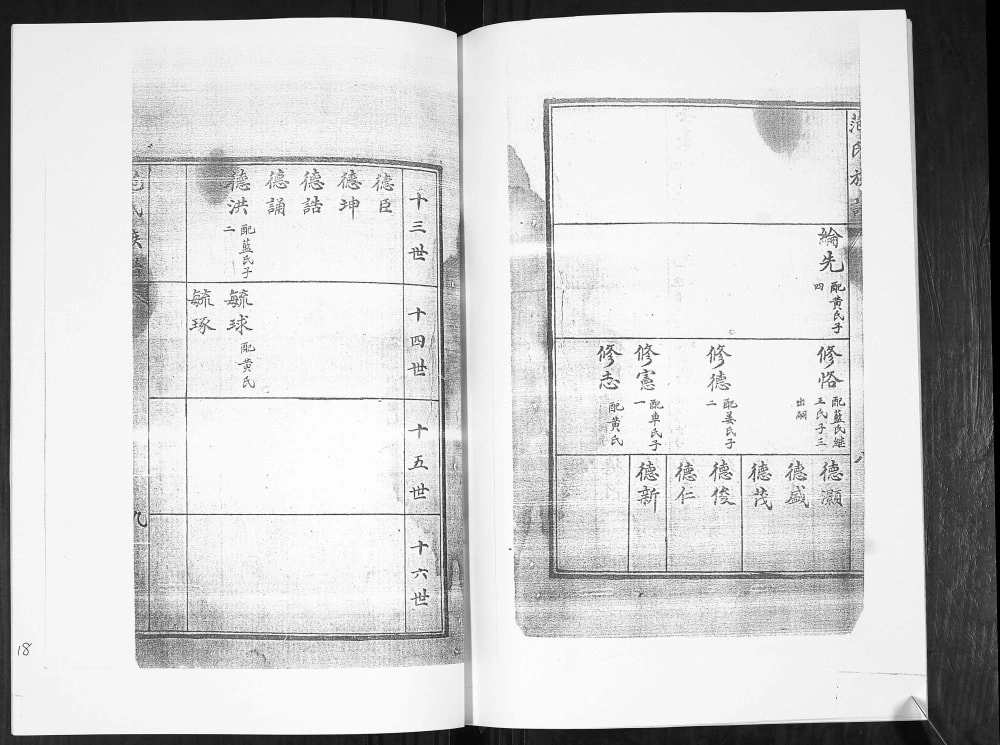 范氏族譜
綸先 配黃氏子
四
修恪 配藍氏繼
王氏子三
出嗣
修德 配姜氏子
二
修憲 配車氏子
一
修志 配黃氏
德灝
德盛
德茂
德俊
德仁
德新
八
十三世
德臣
德坤
德誥
德誦
德洪 配藍氏子
二
十四世
毓球 配黃氏
毓琢
十五世
十六世
范氏族譜
九
18